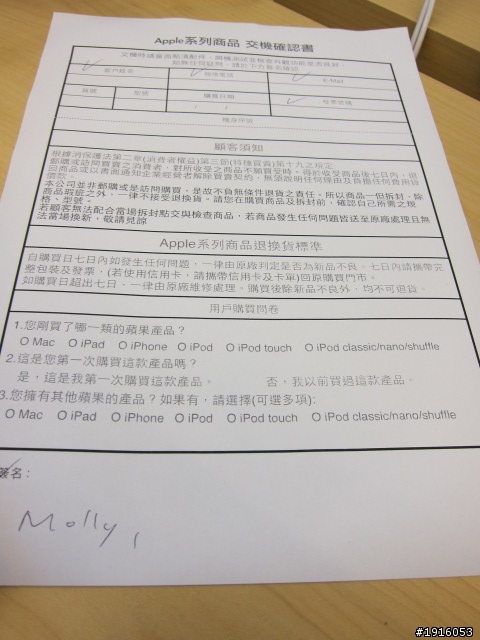 Apple系列商品 交機確認書
客戶姓名 聯絡電話 E-Mail
貨號 型號 購買日期 發票號碼
/ /
機身序號
顧客須知
根據消保護法第二章(消費者權益)第三節(特種買賣)第十九之規定，
郵購或訪問買賣之消費者，對所收受之商品不願買受時，得於收受商品後七日內，退
回商品或以書面通知企業經營者解除買賣契約，無須說明任何理由及負擔任何費用或
價款。
本公司並非郵購或是訪問購買，是故不負無條件退貨之責任。所以商品一但拆封，除
商品瑕疵之外，一律不接受退換貨。請您在購買商品及拆封前，確認自己所需之規
格、型號。
若顧客無法配合當場拆封點交與檢查商品，若商品發生任何問題皆送至原廠處理且無
法當場換新，敬請見諒
Apple系列商品退換貨標準
自購買日七日內如發生任何問題，一律由原廠判定是否為新品不良。七日內請攜帶完
整包裝及發票，(若使用信用卡、請攜帶信用卡及卡單)回原購買門市。
如購買日超出七日，一律由原廠維修處理。購買後除新品不良外，均不可退貨。
用戶購買問卷
1.您剛買了哪一類的蘋果產品？
O Mac O iPad O iPhone O iPod O iPod touch O iPod classic/nano/shuffle
2.這是您第一次購買這款產品嗎？
是，這是我第一次購買這款產品。 否，我以前買過這款產品。
3.您擁有其他蘋果的產品？如果有，請選擇(可選多項):
O Mac O iPad O iPhone O iPod O iPod touch O iPod classic/nano/shuffle
簽名：
Molly,
#1916053